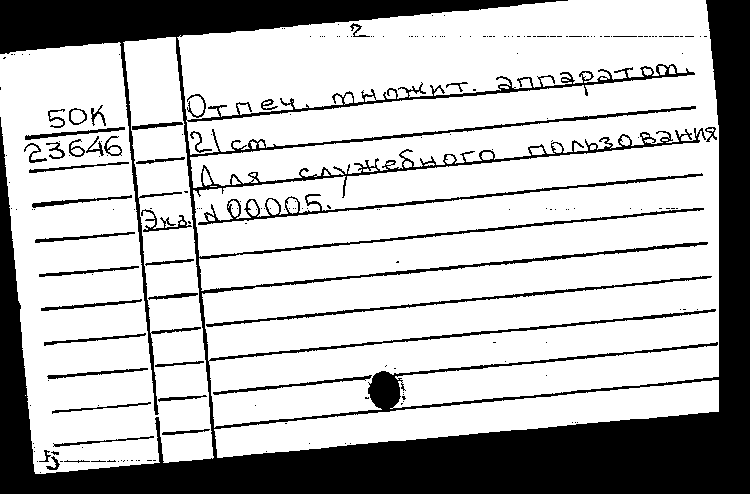 2
50К Отпеч. множит. аппаратом.
23646 21 ст.
Для служебного пользования
Экз. N 00005.
5